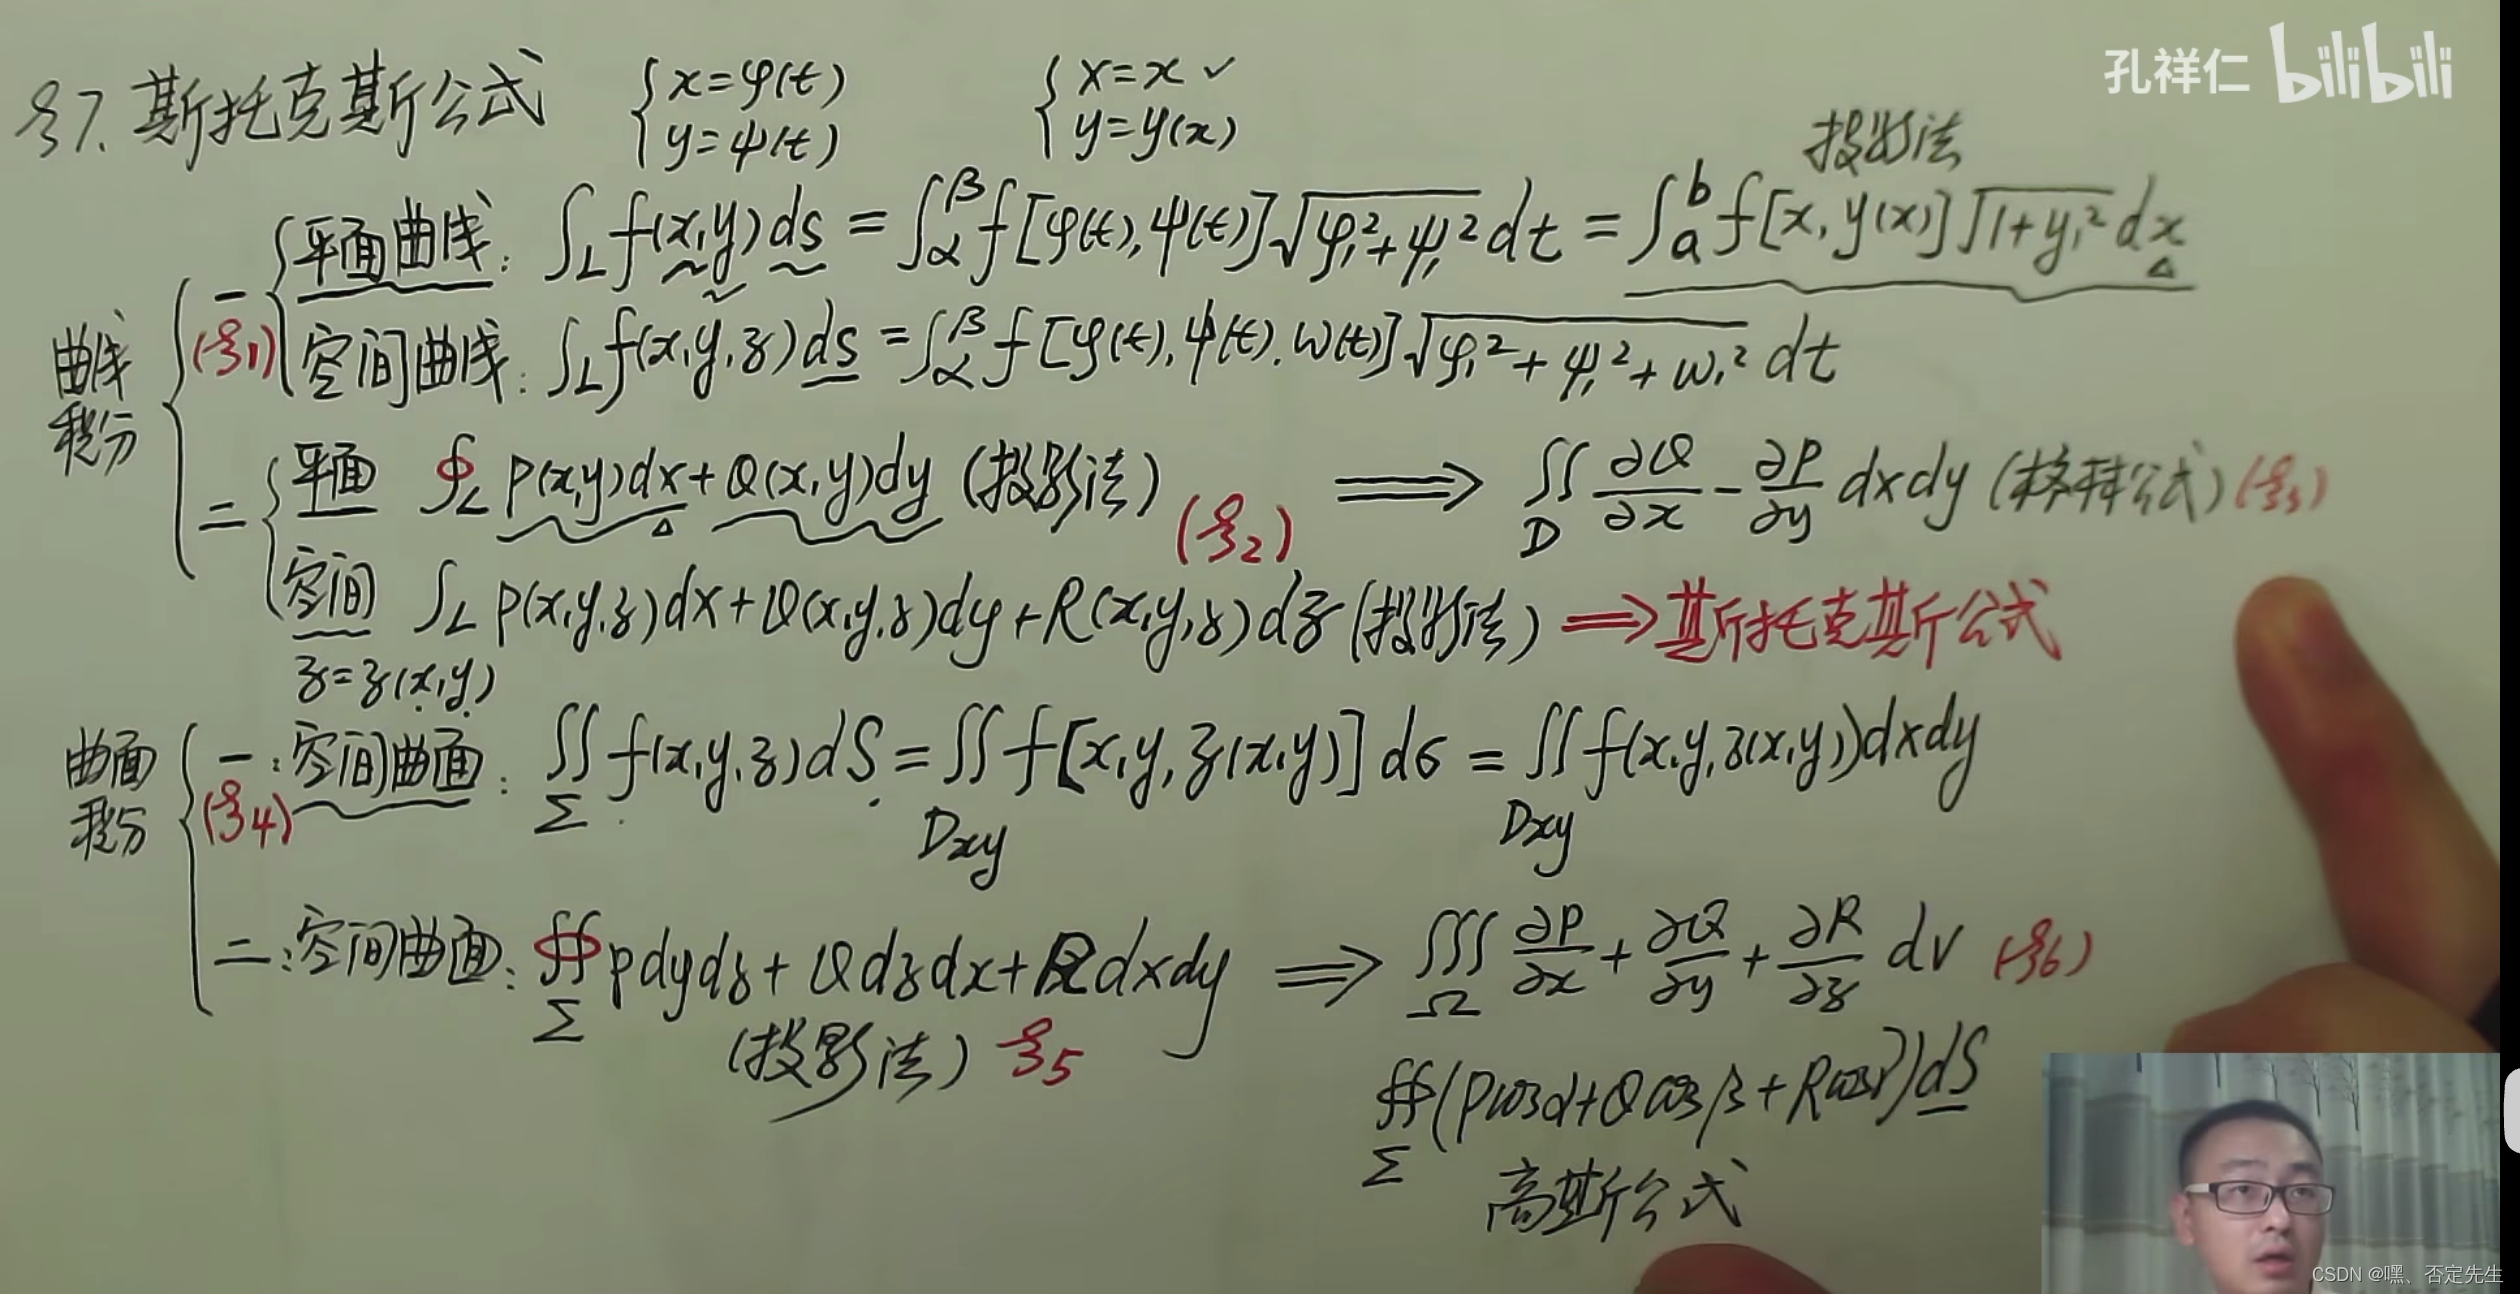 孔祥仁 bilibili
§7. 斯托克斯公式 { x=φ(t) y=ψ(t) { x=x ✓ y=y(x)
投影法
曲线积分
一 (§1)
平面曲线: ∫_L f(x,y)ds = ∫_α^β f[φ(t),ψ(t)]√(φ'²+ψ'²) dt = ∫_a^b f[x,y(x)]√(1+y'²) dx
空间曲线: ∫_L f(x,y,z)ds = ∫_α^β f[φ(t),ψ(t),ω(t)]√(φ'²+ψ'²+ω'²) dt
二
平面 ∮_L P(x,y)dx+Q(x,y)dy (投影法) (§2) ⟹ ∬_D ∂Q/∂x - ∂P/∂y dxdy (格林公式) (§3)
空间 ∫_L P(x,y,z)dx+Q(x,y,z)dy+R(x,y,z)dz (投影法) ⟹ 斯托克斯公式
z=z(x,y)
曲面积分
一: (§4) 空间曲面: ∬_Σ f(x,y,z)dS = ∬_Dxy f[x,y,z(x,y)]dσ = ∬_Dxy f(x,y,z(x,y))dxdy
二: 空间曲面: ∯_Σ Pdydz+Qdzdx+Rdxdy ⟹ ∭_Ω ∂P/∂x + ∂Q/∂y + ∂R/∂z dv (§6)
(投影法) §5
∯_Σ (Pcosα+Qcosβ+Rcosγ)dS
高斯公式
CSDN @嘿、否定先生